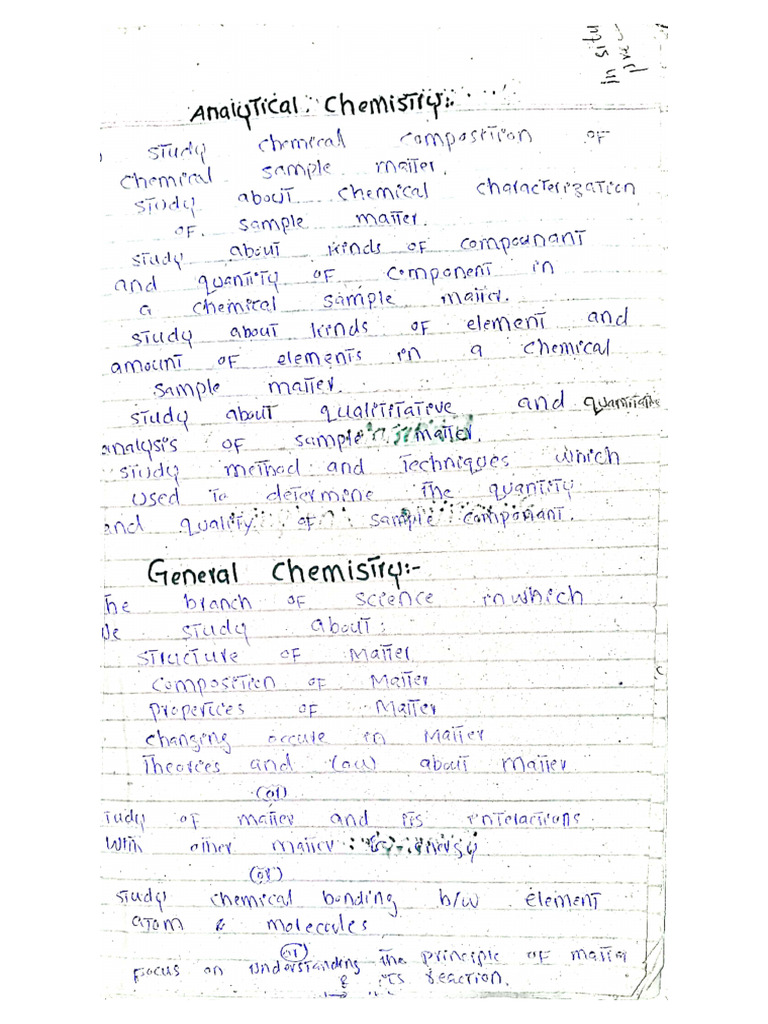 Analytical Chemistry:-
study chemical composition of
chemical sample matter.
study about chemical characterization
of sample matter.
study about kinds of compounant
and quantity of component in
a chemical sample matter.
study about kinds of element and
amount of elements in a chemical
sample matter.
study about qualititative and quantitative
analysis of sample matter.
study method and techniques which
used to determine the quantity
and quality of sample componant.
General Chemistry:-
The branch of science in which
We study about:
structure of Matter
composition of Matter
properties of Matter
changing occure in Matter
Theories and law about matter
(or)
study of matter and its interactions
with other matter & energy
(or)
study chemical bonding b/w element
atom & molecules
(or)
Focus on understanding the principle of matter
& its reaction.